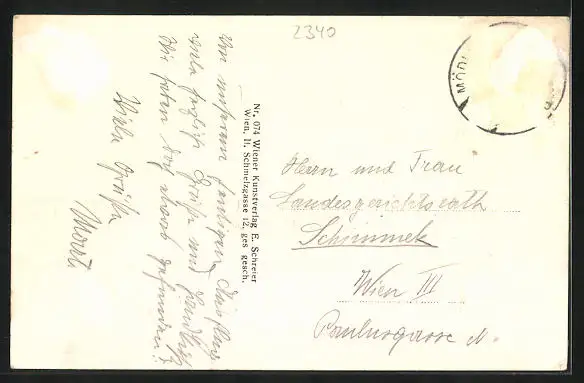 2340
MÖD
Von unserem heutigen Ausflug
viele herzliche Grüße und Handkuß
Wir haben doch etwas gefunden!!
Viele Grüße
Nr. 074 Wiener Kunstverlag E. Schreier
Wien, II. Schmelzgasse 12, ges gesch.
Herrn und Frau
Landesgerichtsrath
Schimmek
Wien III